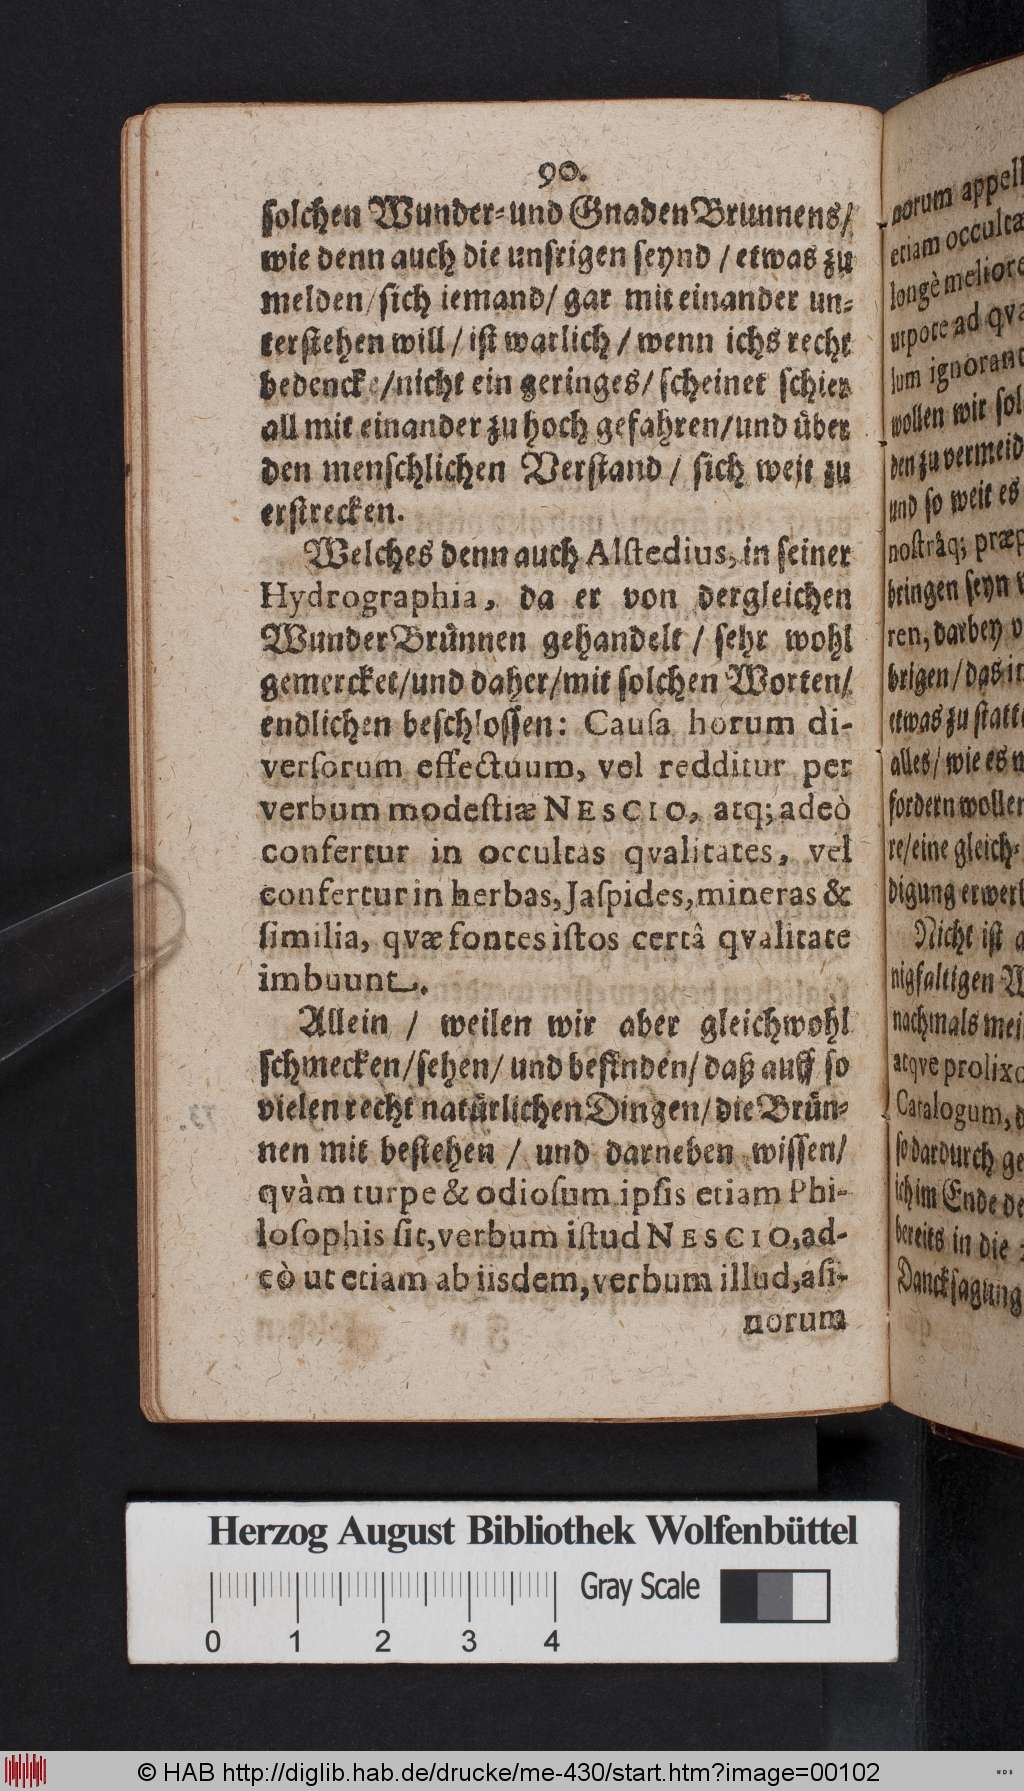 90.
ſolchen Wunder- und Gnaden Brunnens/
wie denn auch die unſrigen ſeynd / etwas zu
melden/ſich iemand/ gar mit einander un-
terſtehen will / iſt warlich / wenn ichs recht
bedencke/nicht ein geringes/ ſcheinet ſchier
all mit einander zu hoch gefahren/und uͤber
den menſchlichen Verſtand / ſich weit zu
erſtrecken.
Welches denn auch Alſtedius, in ſeiner
Hydrographia, da er von dergleichen
Wunder Bruͤnnen gehandelt / ſehr wohl
gemercket/und daher/mit ſolchen Worten/
endlichen beſchloſſen: Cauſa horum di-
verſorum effectuum, vel redditur per
verbum modeſtiæ NESCIO, atq; adeò
confertur in occultas qvalitates, vel
confertur in herbas, Jaſpides, mineras &
ſimilia, qvæ fontes iſtos certâ qvalitate
imbuunt.
Allein / weilen wir aber gleichwohl
ſchmecken/ſehen/ und befinden/ daß auff ſo
vielen recht natuͤrlichen Dingen/ die Bruͤn-
nen mit beſtehen / und darneben wiſſen/
qvàm turpe & odioſum ipſis etiam Phi-
loſophis ſit, verbum iſtud NESCIO, ad-
eò ut etiam ab iisdem, verbum illud, aſi-
norum
norum appell
etiam occulta
longè meliore
utpote ad qva
lum ignorant
wollen wir ſol
den zu vermeid
und ſo weit es
noſtrâq; præp
bringen ſeyn
ren, darbey
brigen/ das
etwas zu ſtatt
alles/ wie es
fordern wollen
re/eine gleich-
digung erwer
Nicht iſt
nigfaltigen W
nachmals mei
atqve prolixo
Catalogum,
ſo dardurch ge
ich im Ende de
bereits in die
Danckſagung
Herzog August Bibliothek Wolfenbüttel
Gray Scale
0 1 2 3 4
© HAB http://diglib.hab.de/drucke/me-430/start.htm?image=00102